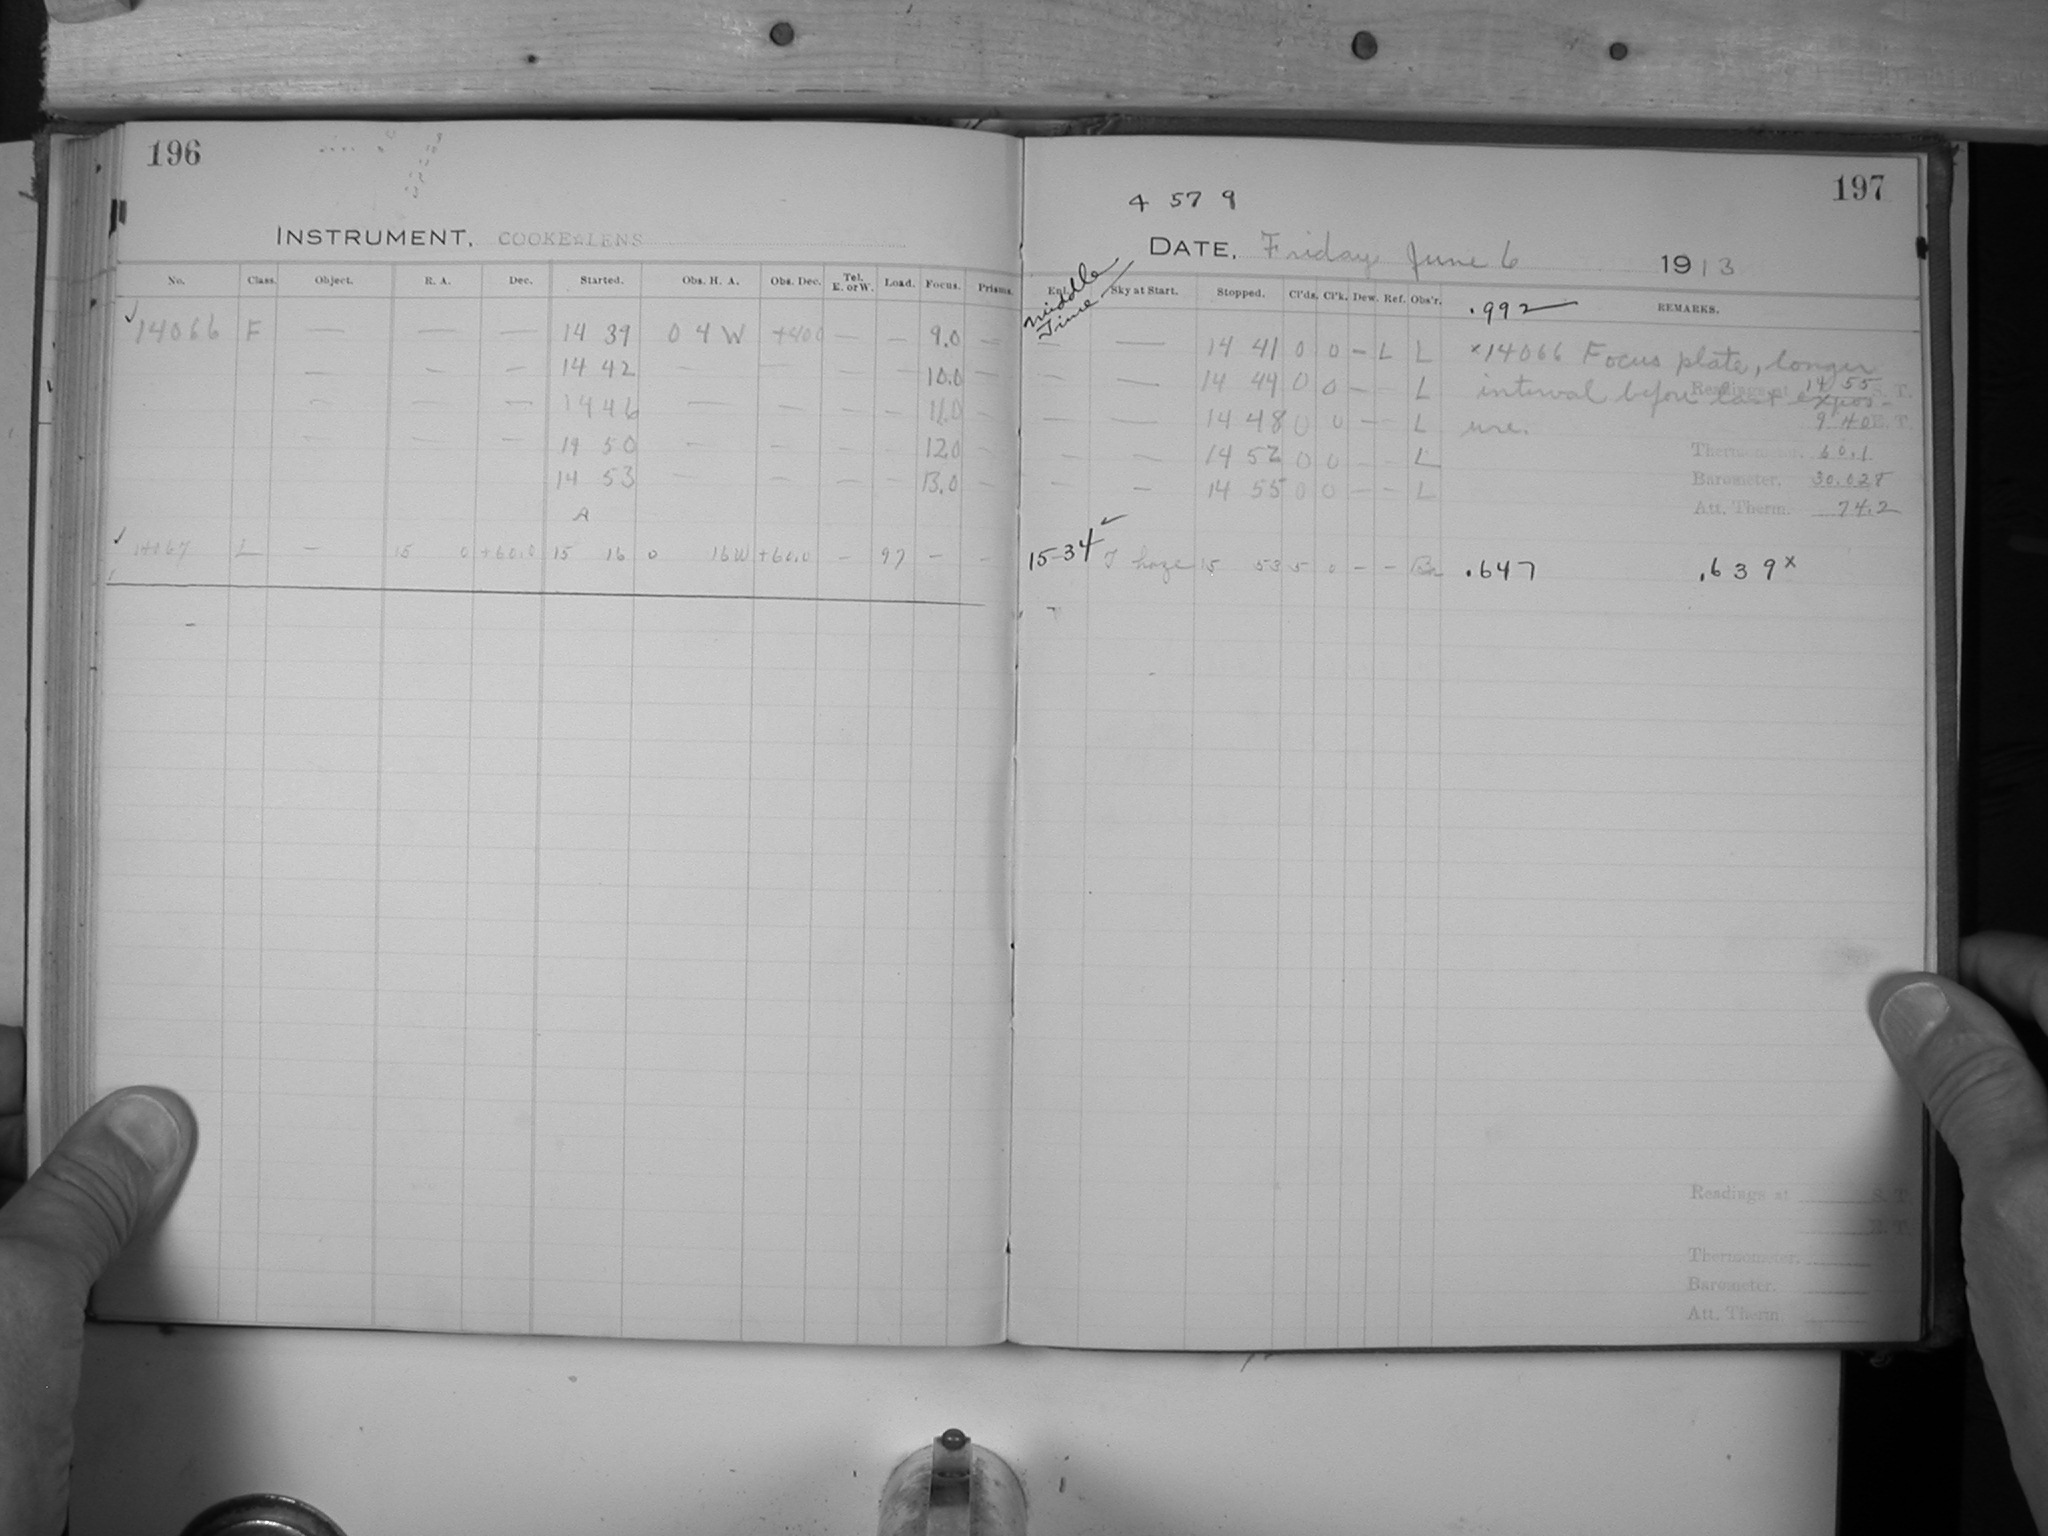 196
INSTRUMENT. COOKE LENS
No. Class. Object. R. A. Dec. Started. Obs. H. A. Obs. Dec. Tel. E. or W. Load. Focus. Prisms.
✓ 14066 F — — — 14 39 0 4 W +40.0 — — 9.0 —
— — — 14 42 — — — — 10.0 —
— — — 14 46 — — — — 11.0 —
— — — 14 50 — — — — 12.0 —
— — — 14 53 — — — — 13.0 —
A
✓ 14067 L — 15 0 +60.0 15 16 0 16W +60.0 — 97 — —
197
4 57 9
DATE. Friday June 6 1913
Middle Time
Sky at Start. Stopped. Cl'ds. Cl'k. Dew. Ref. Obs'r. .992 REMARKS.
— — 14 41 0 0 — L L ×14066 Focus plate, longer
— — 14 44 0 0 — — L interval before last expos-
Readings at 14 55 S. T.
— — 14 48 0 0 — — L ure. 9 40 E. T.
— — 14 52 0 0 — — L Thermometer. 60.1
— — 14 55 0 0 — — L Barometer. 30.028
Att. Therm. 74.2
15-34 ✓ T haze 15 53 5 0 — — .647 .639 ×
Readings at S. T.
E. T.
Thermometer.
Barometer.
Att. Therm.